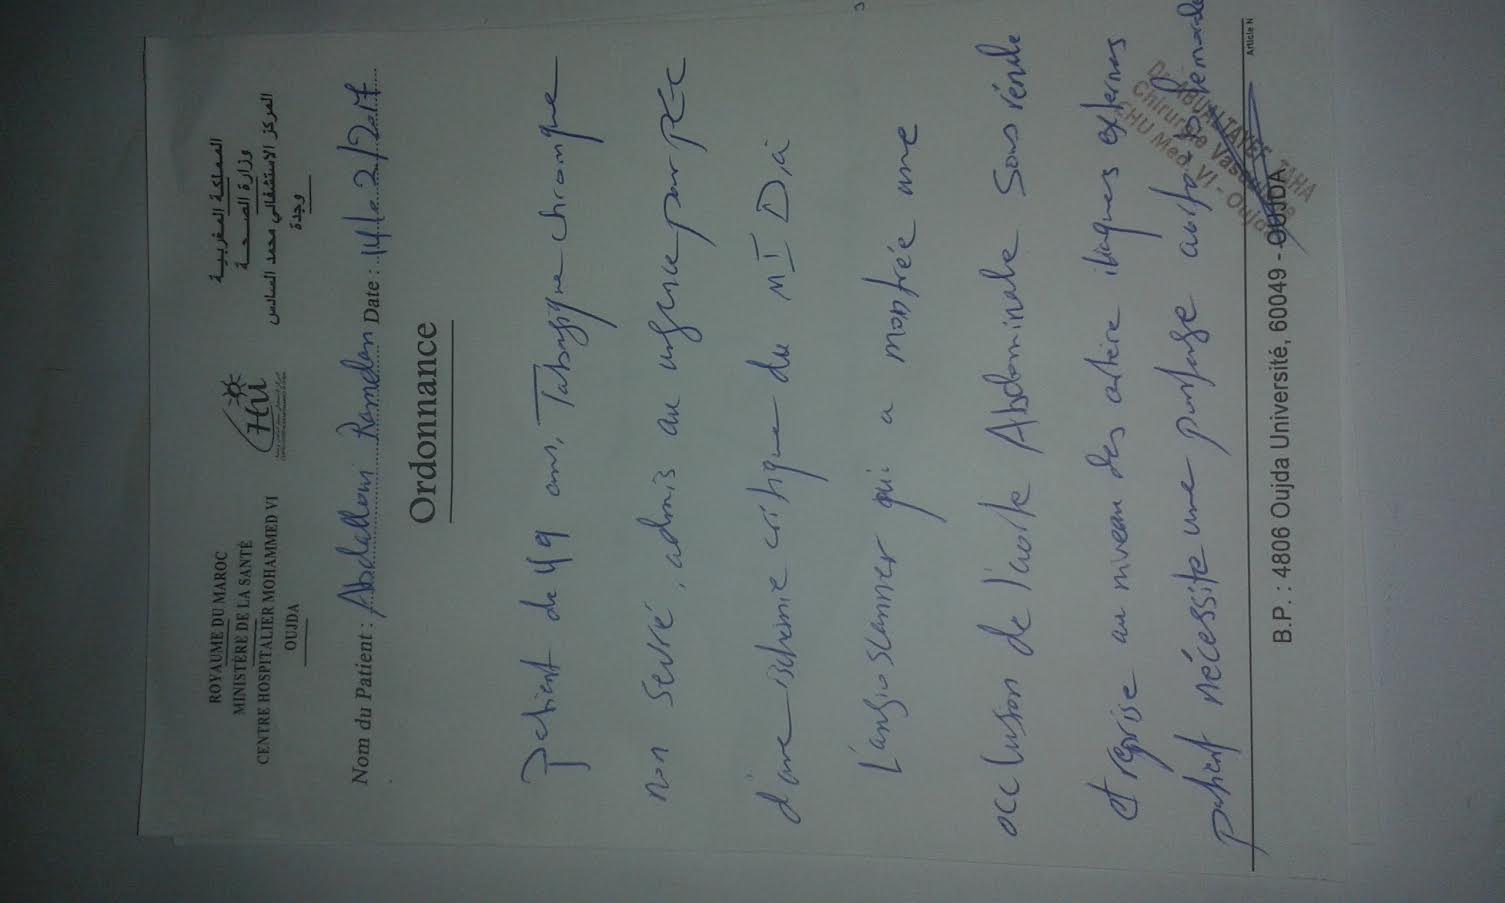 ROYAUME DU MAROC
MINISTÈRE DE LA SANTÉ
CENTRE HOSPITALIER MOHAMMED VI
OUJDA
HU
المملكة المغربية
وزارة الصحة
المركز الاستشفائي محمد السادس
وجدة
Nom du Patient : Abdallaoui Ramdan Date : 14/02/2017
Ordonnance
Patient de 49 ans, Tabagique chronique
non sevré, admis au urgence pour PEC
d'une ischemie critique du MI D, à
L'angioscanner qui a montrée une
occlusion de l'aorte Abdominale Sous rénale
et reprise au niveau des artère iliaques externes
patient nécessite une pontage
Dr. ABUALTAYEF TAHA
Chirurgie Vasculaire
CHU Med. VI - Oujda
B.P. : 4806 Oujda Université, 60049 - OUJDA
Article N